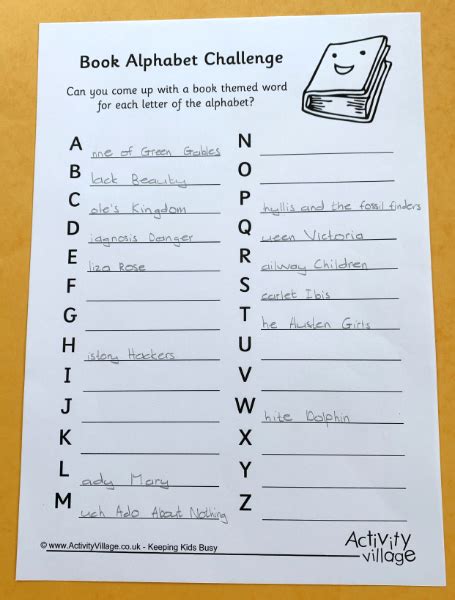 Book Alphabet Challenge
Can you come up with a book themed word
for each letter of the alphabet?
A nne of Green Gables
B lack Beauty
C ole's Kingdom
D iagnosis Danger
E liza Rose
F
G
H istory Hackers
I
J
K
L ady Mary
M uch Ado About Nothing
N
O
P hyllis and the fossil finders
Q ueen Victoria
R ailway Children
S carlet Ibis
T he Austen Girls
U
V
W hite Dolphin
X
Y
Z
© www.ActivityVillage.co.uk - Keeping Kids Busy
Activity
village